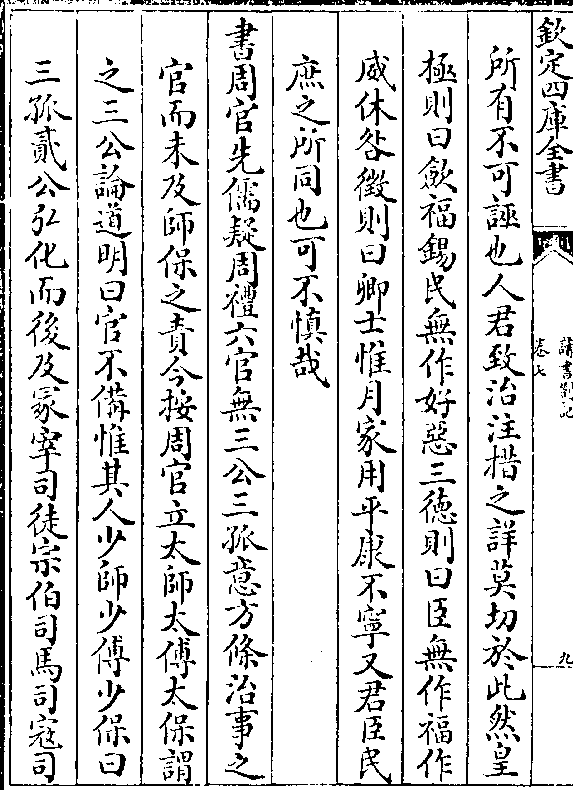 欽定四庫全書
讀書劄記
卷七
九
所有不可誣也人君致治注措之詳莫切於此然皇
極則曰斂福錫民無作好惡三德則曰臣無作福作
威休咎徵則曰卿士惟月家用平康不寧又君臣民
庶之所同也可不慎哉
書周官先儒疑周禮六官無三公三孤意方條治事之
官而未及師保之責今按周官立太師太傅太保謂
之三公論道明曰官不備惟其人少師少傅少保曰
三孤貳公弘化而後及冢宰司徒宗伯司馬司寇司